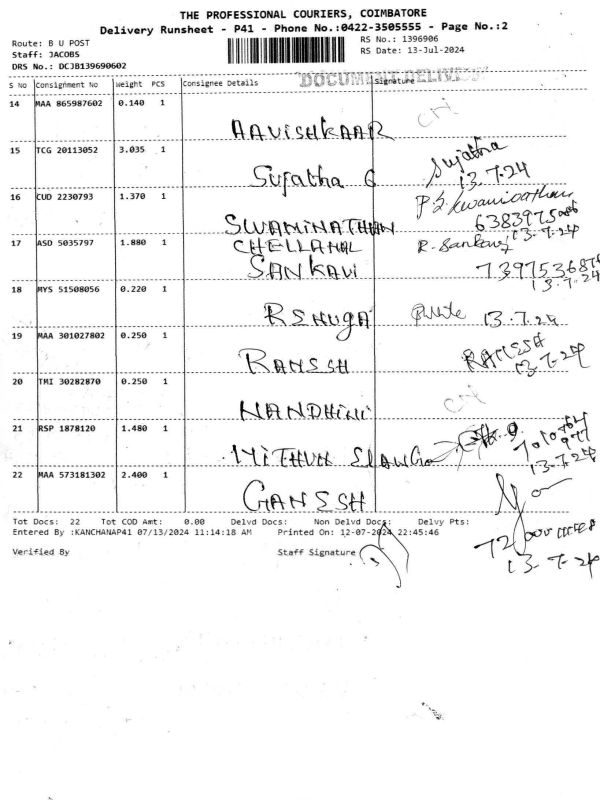 THE PROFESSIONAL COURIERS, COIMBATORE
Delivery Runsheet - P41 - Phone No.:0422-3505555 - Page No.:2
Route: B U POST RS No.: 1396906
Staff: JACOBS RS Date: 13-Jul-2024
DRS No.: DCJB139690602
DOCUMENT DELIVERY
S No Consignment No Weight PCS Consignee Details Signature
14 MAA 865987602 0.140 1
AAVISHKAAR
15 TCG 20113052 3.035 1 Sujatha
Sujatha G 13.7.24
16 CUD 2230793 1.370 1
SWAMINATHAN
17 ASD 5035797 1.880 1 13.7.24
CHELLAMAL R. Sankavi
SANKAVI 13.7.24
18 MYS 51508056 0.220 1
RENUGA 13.7.24
19 MAA 301027802 0.250 1 RAMESH
RAMESH 13.7.24
20 TMI 30282870 0.250 1
NANDHINI
21 RSP 1878120 1.480 1
MITHUN 13.7.24
22 MAA 573181302 2.400 1
GANESH
Tot Docs: 22 Tot COD Amt: 0.00 Delvd Docs: Non Delvd Docs: Delvy Pts:
Entered By :KANCHANAP41 07/13/2024 11:14:18 AM Printed On: 12-07-2024 22:45:46
Verified By Staff Signature
13.7.24